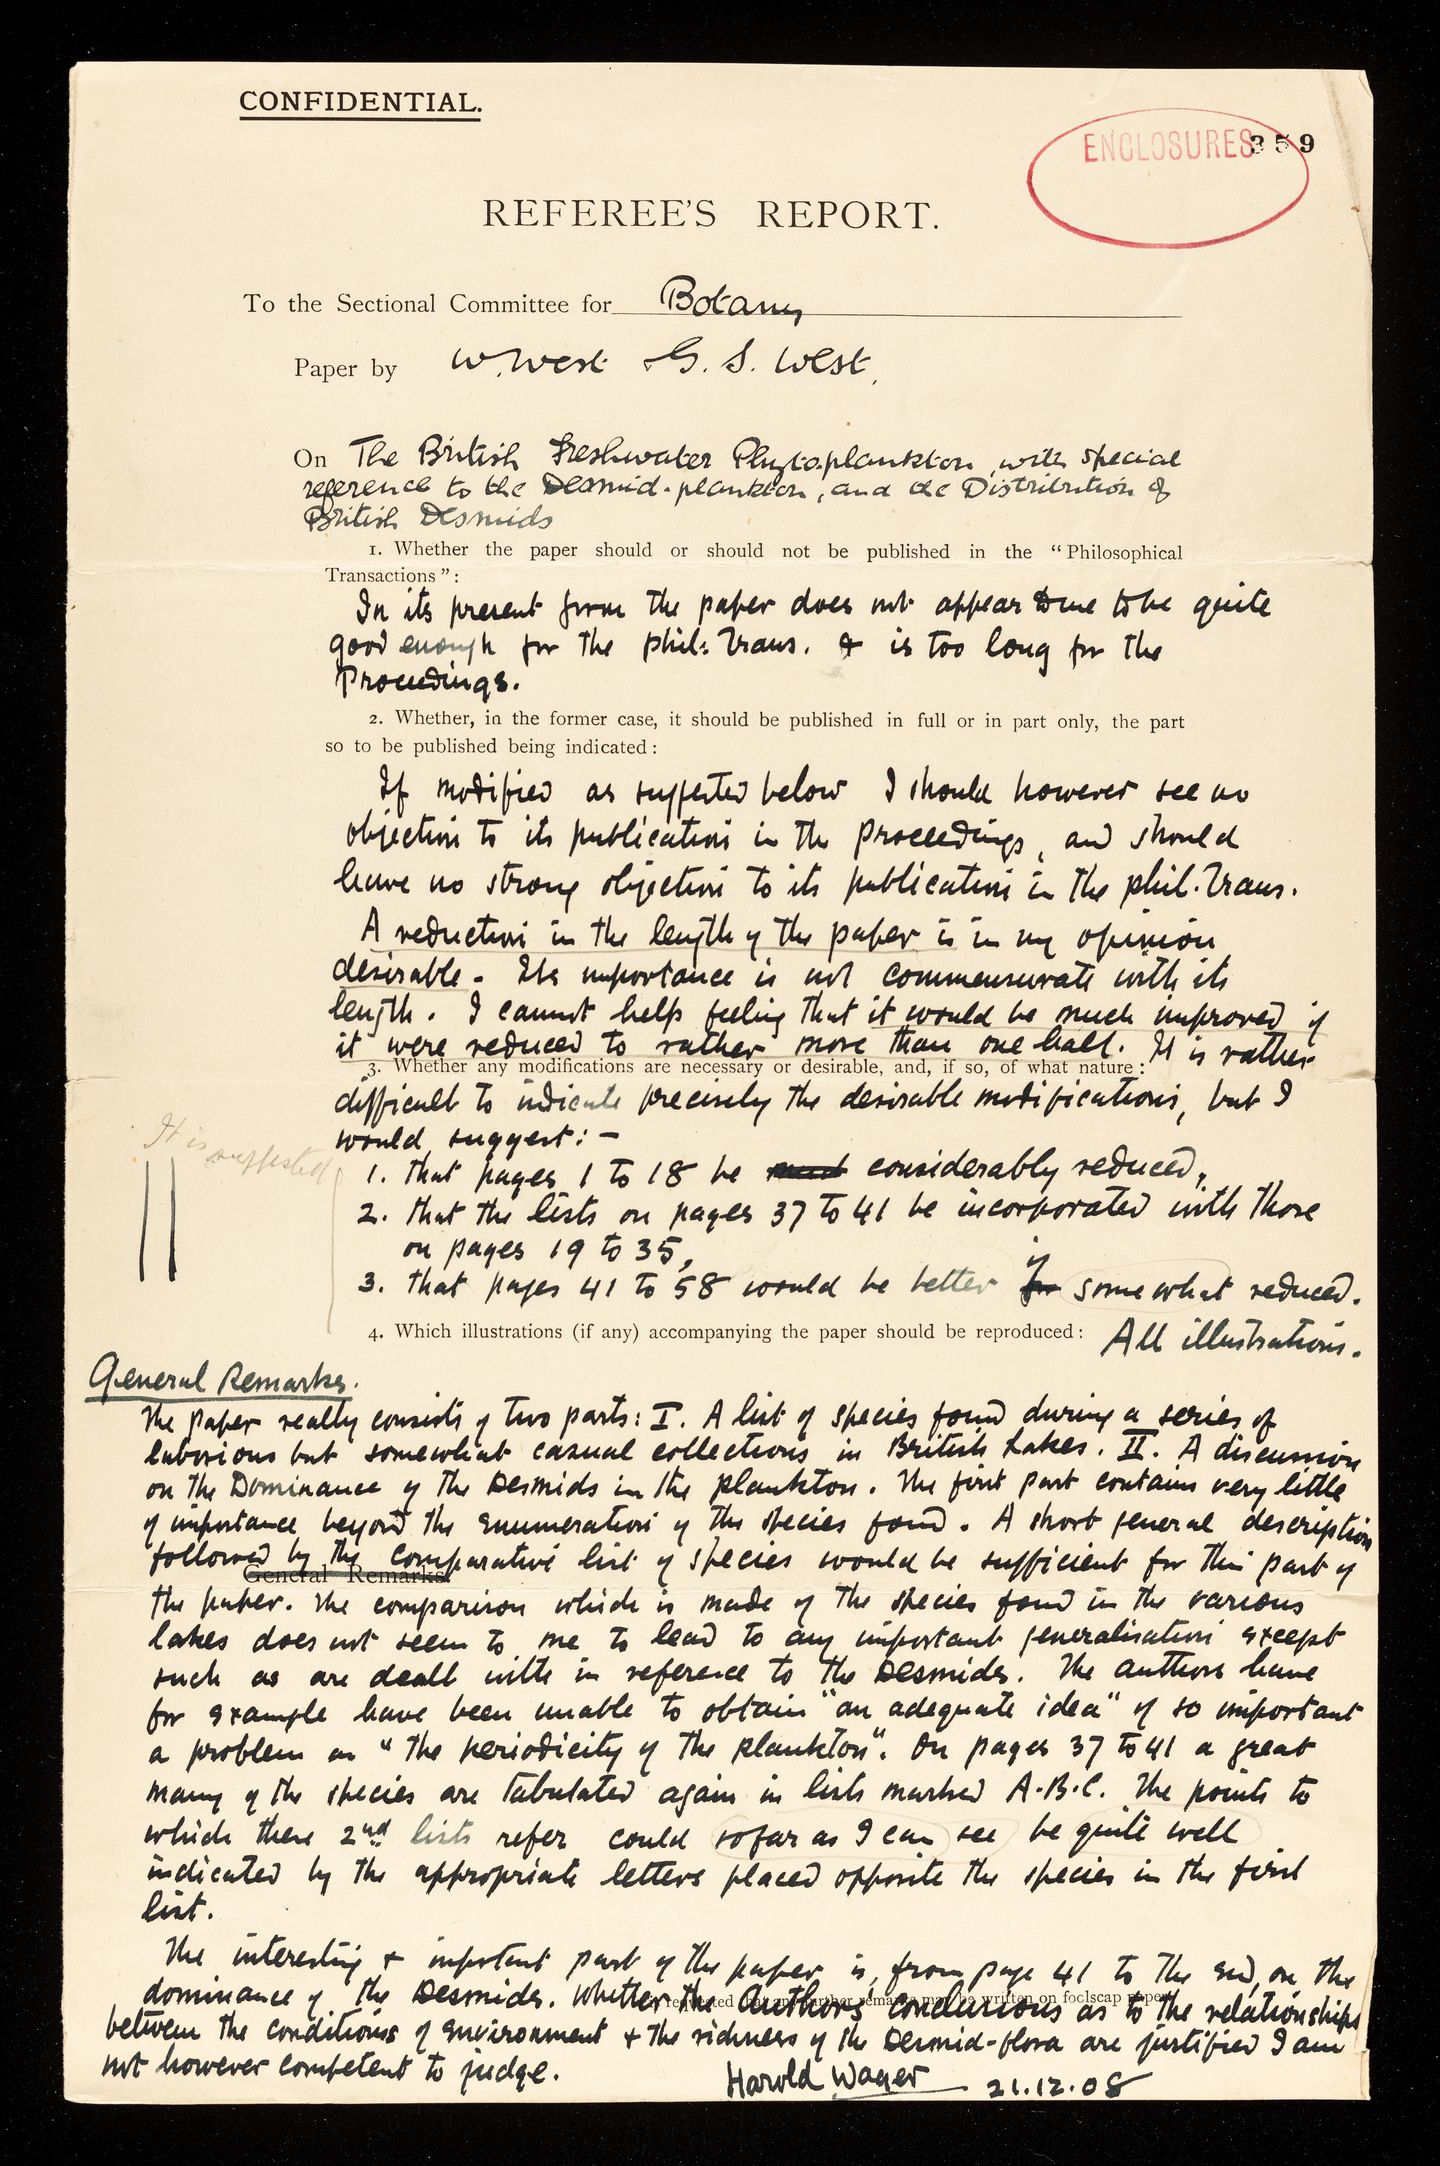 CONFIDENTIAL.
ENCLOSURES 359
REFEREE'S REPORT.
To the Sectional Committee for Botany
Paper by W. West & G. S. West.
On The British Freshwater Phytoplankton, with special
reference to the Desmid-plankton, and the Distribution of
British Desmids
1. Whether the paper should or should not be published in the "Philosophical
Transactions":
In its present form the paper does not appear to me to be quite
good enough for the Phil: Trans. & is too long for the
Proceedings.
2. Whether, in the former case, it should be published in full or in part only, the part
so to be published being indicated:
If modified as suggested below I should however see no
objection to its publication in the Proceedings, and should
have no strong objection to its publication in the Phil. Trans.
A reduction in the length of the paper is in my opinion
desirable. Its importance is not commensurate with its
length. I cannot help feeling that it would be much improved if
it were reduced to rather more than one half. It is rather
3. Whether any modifications are necessary or desirable, and, if so, of what nature:
difficult to indicate precisely the desirable modifications, but I
would suggest:-
It is suggested
1. that pages 1 to 18 be much considerably reduced,
2. that the lists on pages 37 to 41 be incorporated with those
on pages 19 to 35,
3. that pages 41 to 58 would be better for if somewhat reduced.
4. Which illustrations (if any) accompanying the paper should be reproduced: All illustrations.
General Remarks.
The paper really consists of two parts: I. A list of species found during a series of
laborious but somewhat casual collections in British Lakes. II. A discussion
on the Dominance of the Desmids in the plankton. The first part contains very little
of importance beyond the enumeration of the species found. A short general description
followed by the comparative list of species would be sufficient for this part of
General Remarks.
the paper. The comparison which is made of the species found in the various
lakes does not seem to me to lead to any important generalisation except
such as are dealt with in reference to the Desmids. The authors have
for example have been unable to obtain "an adequate idea" of so important
a problem as "the periodicity of the plankton". On pages 37 to 41 a great
many of the species are tabulated again in lists marked A.B.C. The points to
which these 2nd lists refer could so far as I can see be quite well
indicated by the appropriate letters placed opposite the species in the first
list.
The interesting & important part of the paper is, from page 41 to the end, on the
dominance of the Desmids. Whether the Authors' conclusions as to the relationships
requested that any further remarks may be written on foolscap paper
between the conditions of environment & the richness of the Desmid-flora are justified I am
not however competent to judge.
Harold Wager 21.12.08